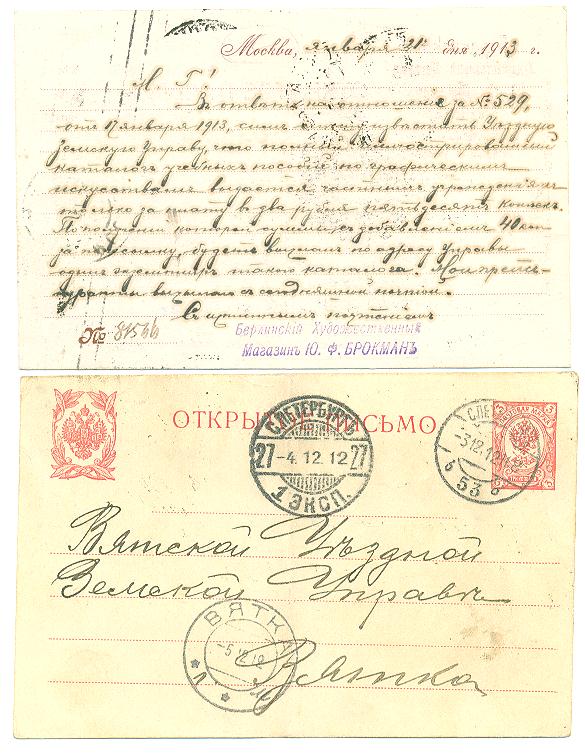 Москва, января 21 дня 1913 г.
М. Г!
Въ ответъ на отношение за № 529,
отъ 17 января 1913, симъ Уездную
Земскую Управу, что полный иллюстрированный
каталогъ учебныхъ пособий по графическимъ
искусствамъ выдается частнымъ учреждениямъ
только за плату въ два рубля пятьдесятъ копеекъ.
По получении которой суммы, съ добавлениемъ 40 коп
за пересылку, будетъ высланъ по адресу Управы
одинъ экземпляръ такого каталога. Мои прейсъ-
куранты высылаю съ сегодняшней почтой.
Съ истиннымъ почтениемъ
№ 81566
Берлинскій Художественный
Магазинъ Ю. Ф. БРОКМАНЪ
ОТКРЫТОЕ ПИСЬМО
С.ПЕТЕРБУРГЪ
27 -4.12.12 27
1 ЭКСП.
-3.12.12
6 53 6
Вятской Уѣздной
Земской Управѣ
ВЯТКА
-5.12.12
Вятка